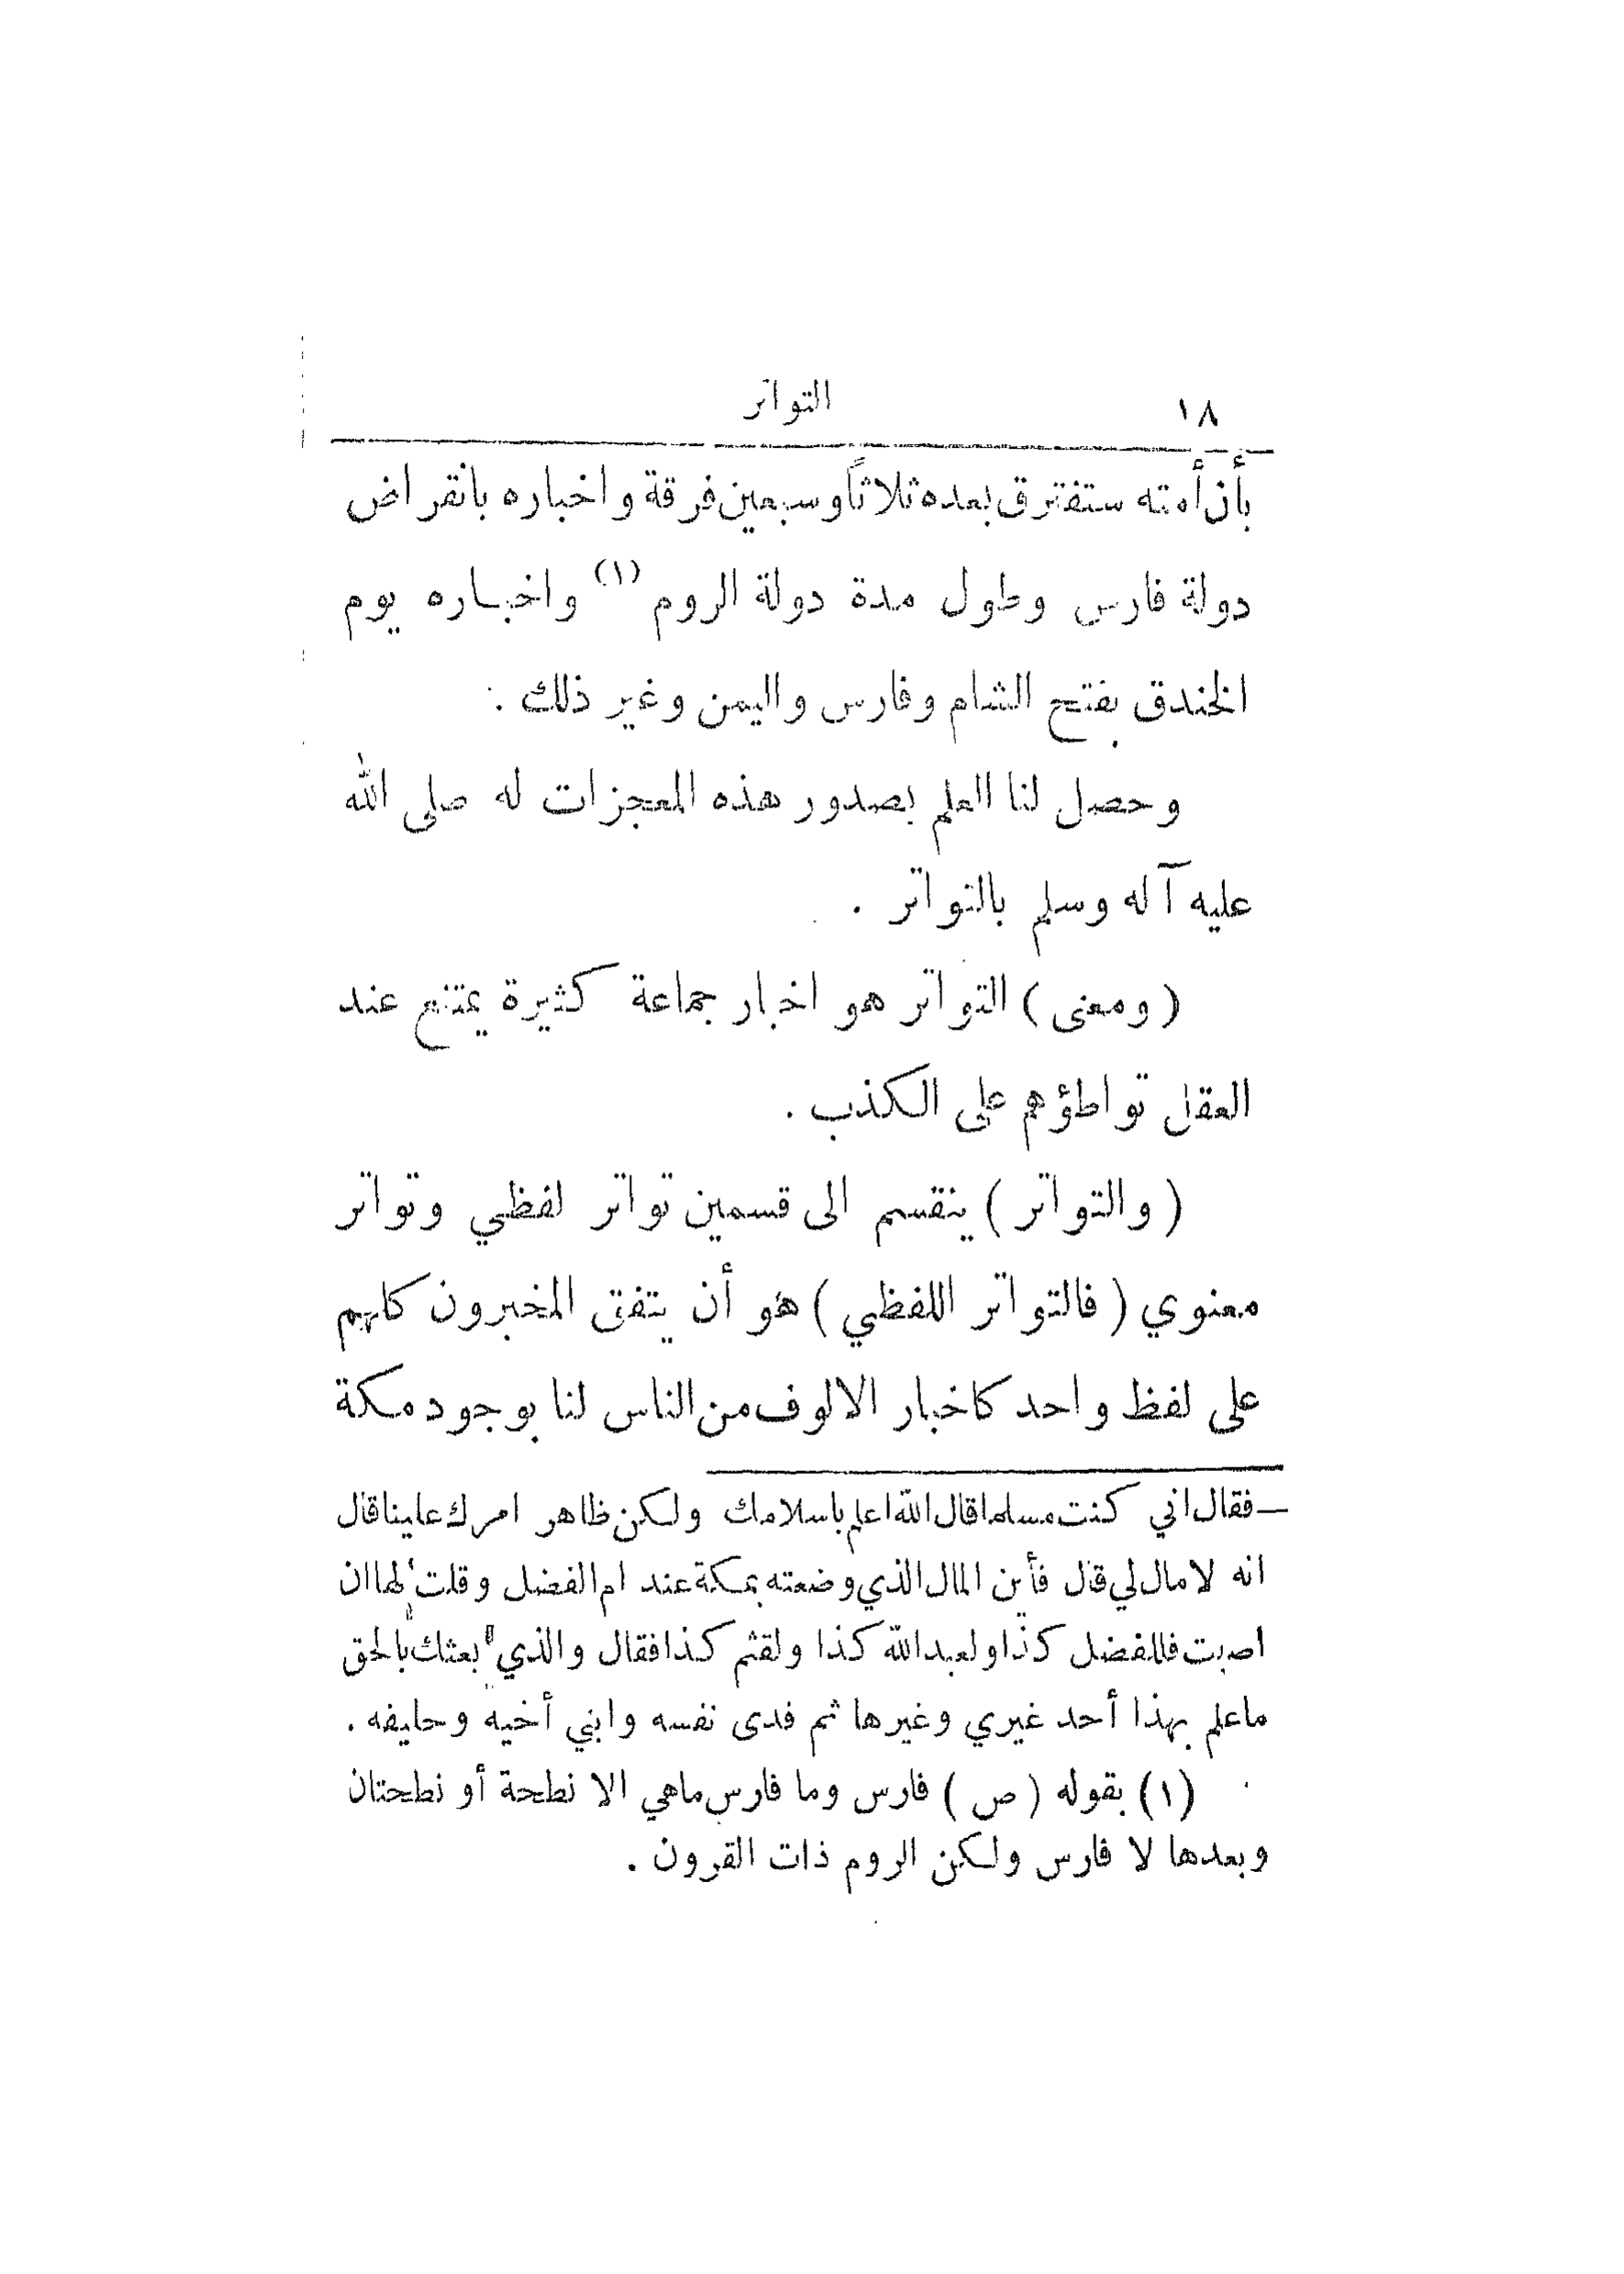 ١٨
التواتر
بأن أمته ستفترق بعده ثلاثاً وسبعين فرقة واخباره بانقراض
دولة فارس وطول مدة دولة الروم (١) واخباره يوم
الخندق بفتح الشام وفارس واليمن وغير ذلك .
وحصل لنا العلم بصدور هذه المعجزات له صلى الله
عليه آله وسلم بالتواتر .
( ومعنى ) التواتر هو اخبار جماعة كثيرة يمتنع عند
العقل تواطؤهم على الكذب .
( والتواتر ) ينقسم الى قسمين تواتر لفظي وتواتر
معنوي ( فالتواتر اللفظي ) هو أن يتفق المخبرون كلهم
على لفظ واحد كاخبار الالوف من الناس لنا بوجود مكة
ــ فقال اني كنت مسلما قال الله اعلم باسلامك ولكن ظاهر امرك علينا قال
انه لا مال لي قال فأين المال الذي وضعته بمكة عند ام الفضل وقلت لها ان
اصبت فللفضل كذا ولعبد الله كذا ولقثم كذا فقال والذي بعثك بالحق
ما علم بهذا أحد غيري وغيرها ثم فدى نفسه وابني أخيه وحليفه .
(١) بقوله ( ص ) فارس وما فارس ماهي الا نطحة أو نطحتان
وبعدها لا فارس ولكن الروم ذات القرون .